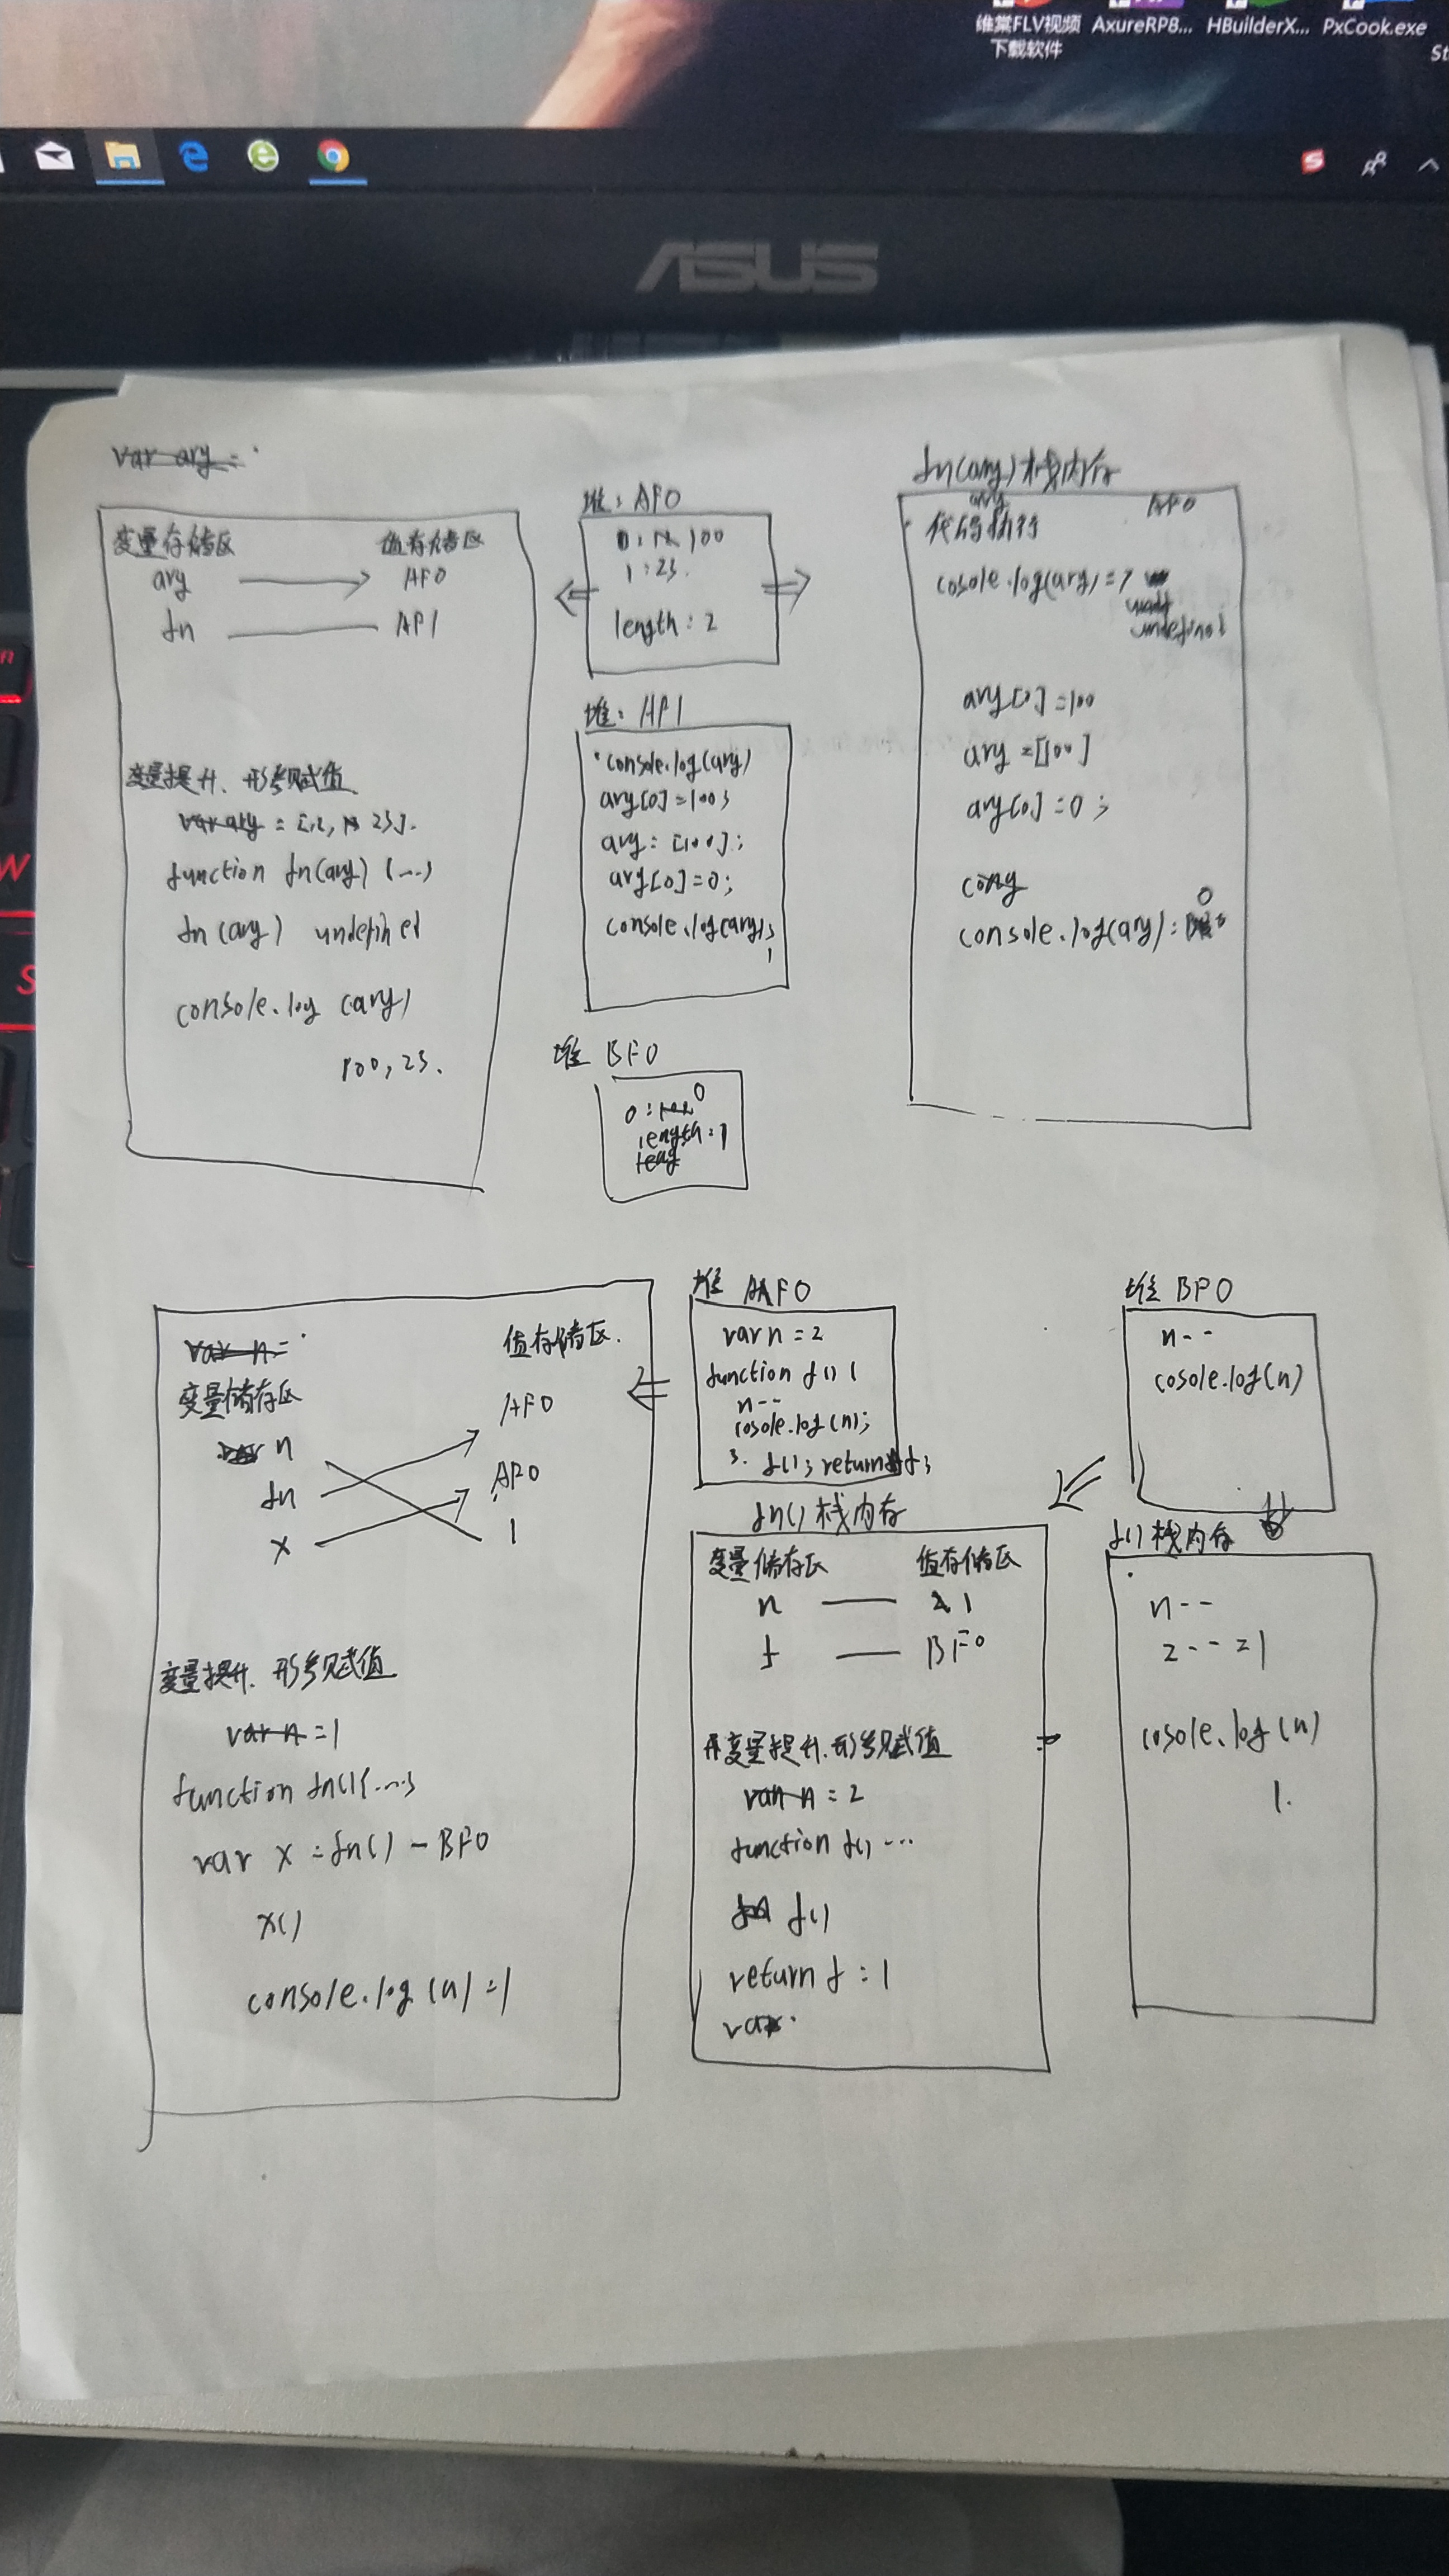 维棠FLV视频
下载软件
AxureRP8...
HBuilderX...
PxCook.exe
St
ASUS
var ary =
变量存储区 值存储区
ary AF0
fn AF1
变量提升、形参赋值
var ary = [12, 23].
function fn(ary) {...}
fn(ary) undefined
console.log (ary)
100, 23.
堆: AF0
0: 12 100
1: 23.
length: 2
堆: AF1
console.log(ary)
ary[0]=100;
ary=[100];
ary[0]=0;
console.log(ary);
堆 BF0
0: 0
length: 1
leng
fn(ary)栈内存
ary AF0
代码执行
cosole.log(ary)=>
undefined
ary[0]=100
ary=[100]
ary[0]=0;
console.log(ary): 0
var n=
值存储区.
变量储存区
n AF0
fn AF0
x 1
变量提升、形参赋值
var n=1
function fn(){...}
var x=fn()-BF0
x()
console.log(n)=1
堆 AAF0
var n=2
function f(){
n--
cosole.log(n);
}. f(); return f;
fn()栈内存
变量储存区 值存储区
n 2 1
f BF0
变量提升、形参赋值
var n=2
function f()...
f()
return f:1
var
堆 BF0
n--
cosole.log(n)
f()栈内存
n--
2--=1
cosole.log(n)
1.